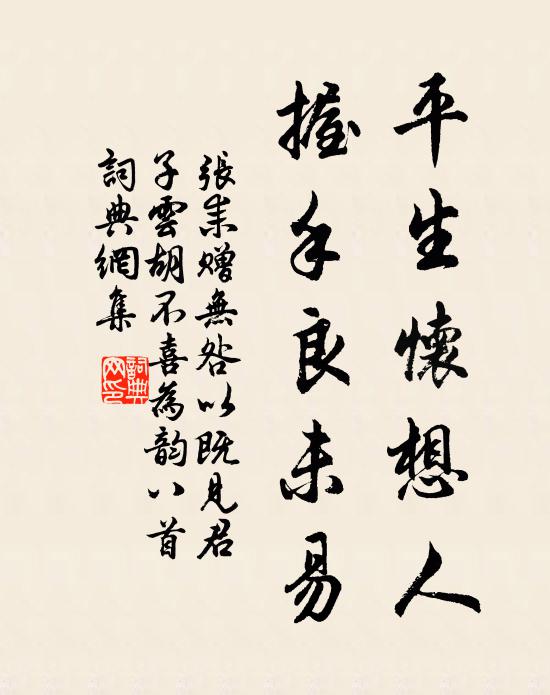 平生懷想人
握手良未易
張耒贈無咎以既見君
子雲胡不喜為韵八首
詞典網集
詞典
网印